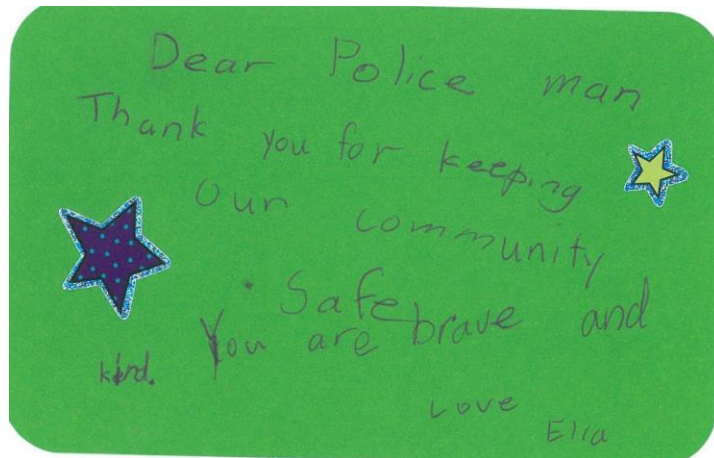 Dear Police man
Thank you for keeping
Our community
Safe
You are brave and
kind.
Love
Ella